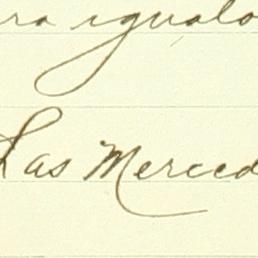 ra igualo
Las Merced